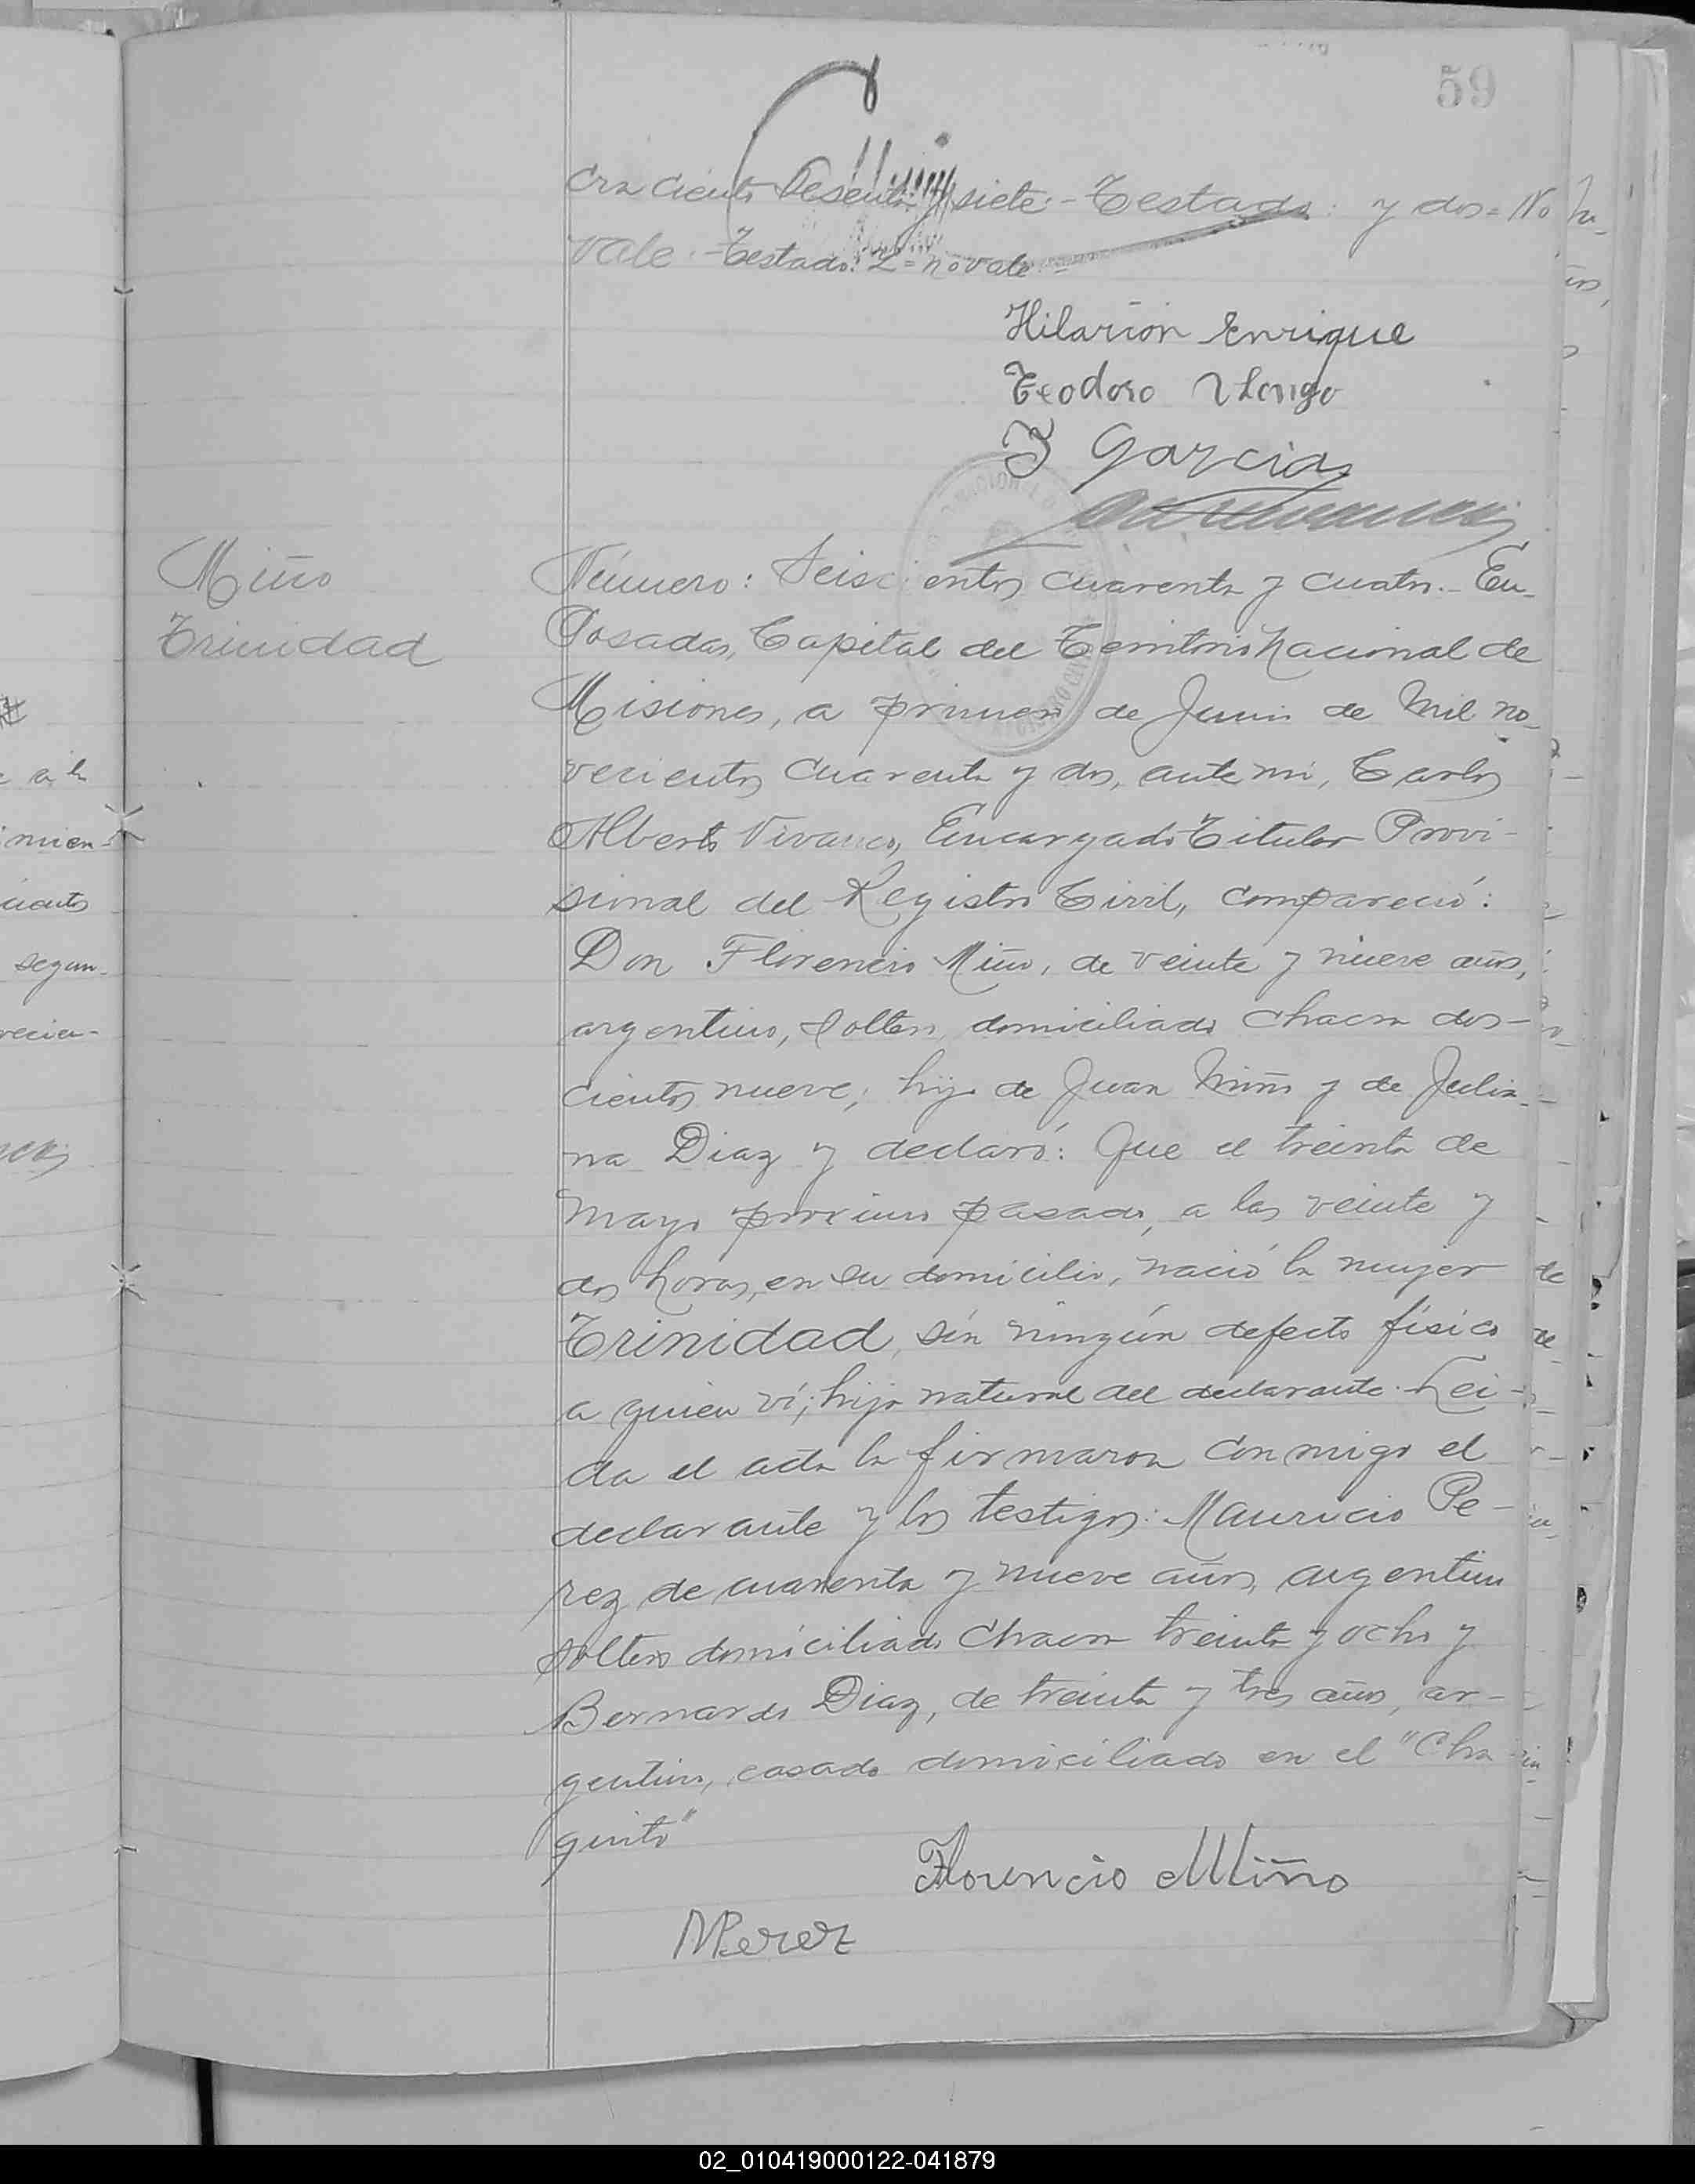 59
cra ciento sesenta y siete.- Testado: y dos= No
vale.- Testado: 2= no vale=
Hilarión Enrique
Teodoro
J Garcia
Miño
Trinidad
Número: Seiscientos cuarenta y cuatro.- En
Posadas, Capital del Territorio Nacional de
Misiones, a primero de Junio de mil no-
vecientos cuarenta y dos, ante mí, Carlos
Alberto Vivanco, Encargado Titular Provi-
sional del Registro Civil, compareció:
Don Florencio Miño, de veinte y nueve años,
argentino, soltero, domiciliado chacra dos-
cientos nueve; hijo de Juan Miño y de Julia-
na Diaz y declaró: Que el treinta de
mayo próximo pasado, a las veinte y
dos horas, en su domicilio, nació la mujer
Trinidad, sin ningún defecto físico
a quien ví; hija natural del declarante. Lei-
da el acta la firmaron conmigo el
declarante y los testigos: Mauricio Pe-
rez de cuarenta y nueve años, argentino
soltero domiciliado chacra treinta y ocho y
Bernardo Diaz, de treinta y tres años, ar-
gentino, casado domiciliado en el "Cha
quito"
Florencio Miño
MPerez
02_010419000122-041879